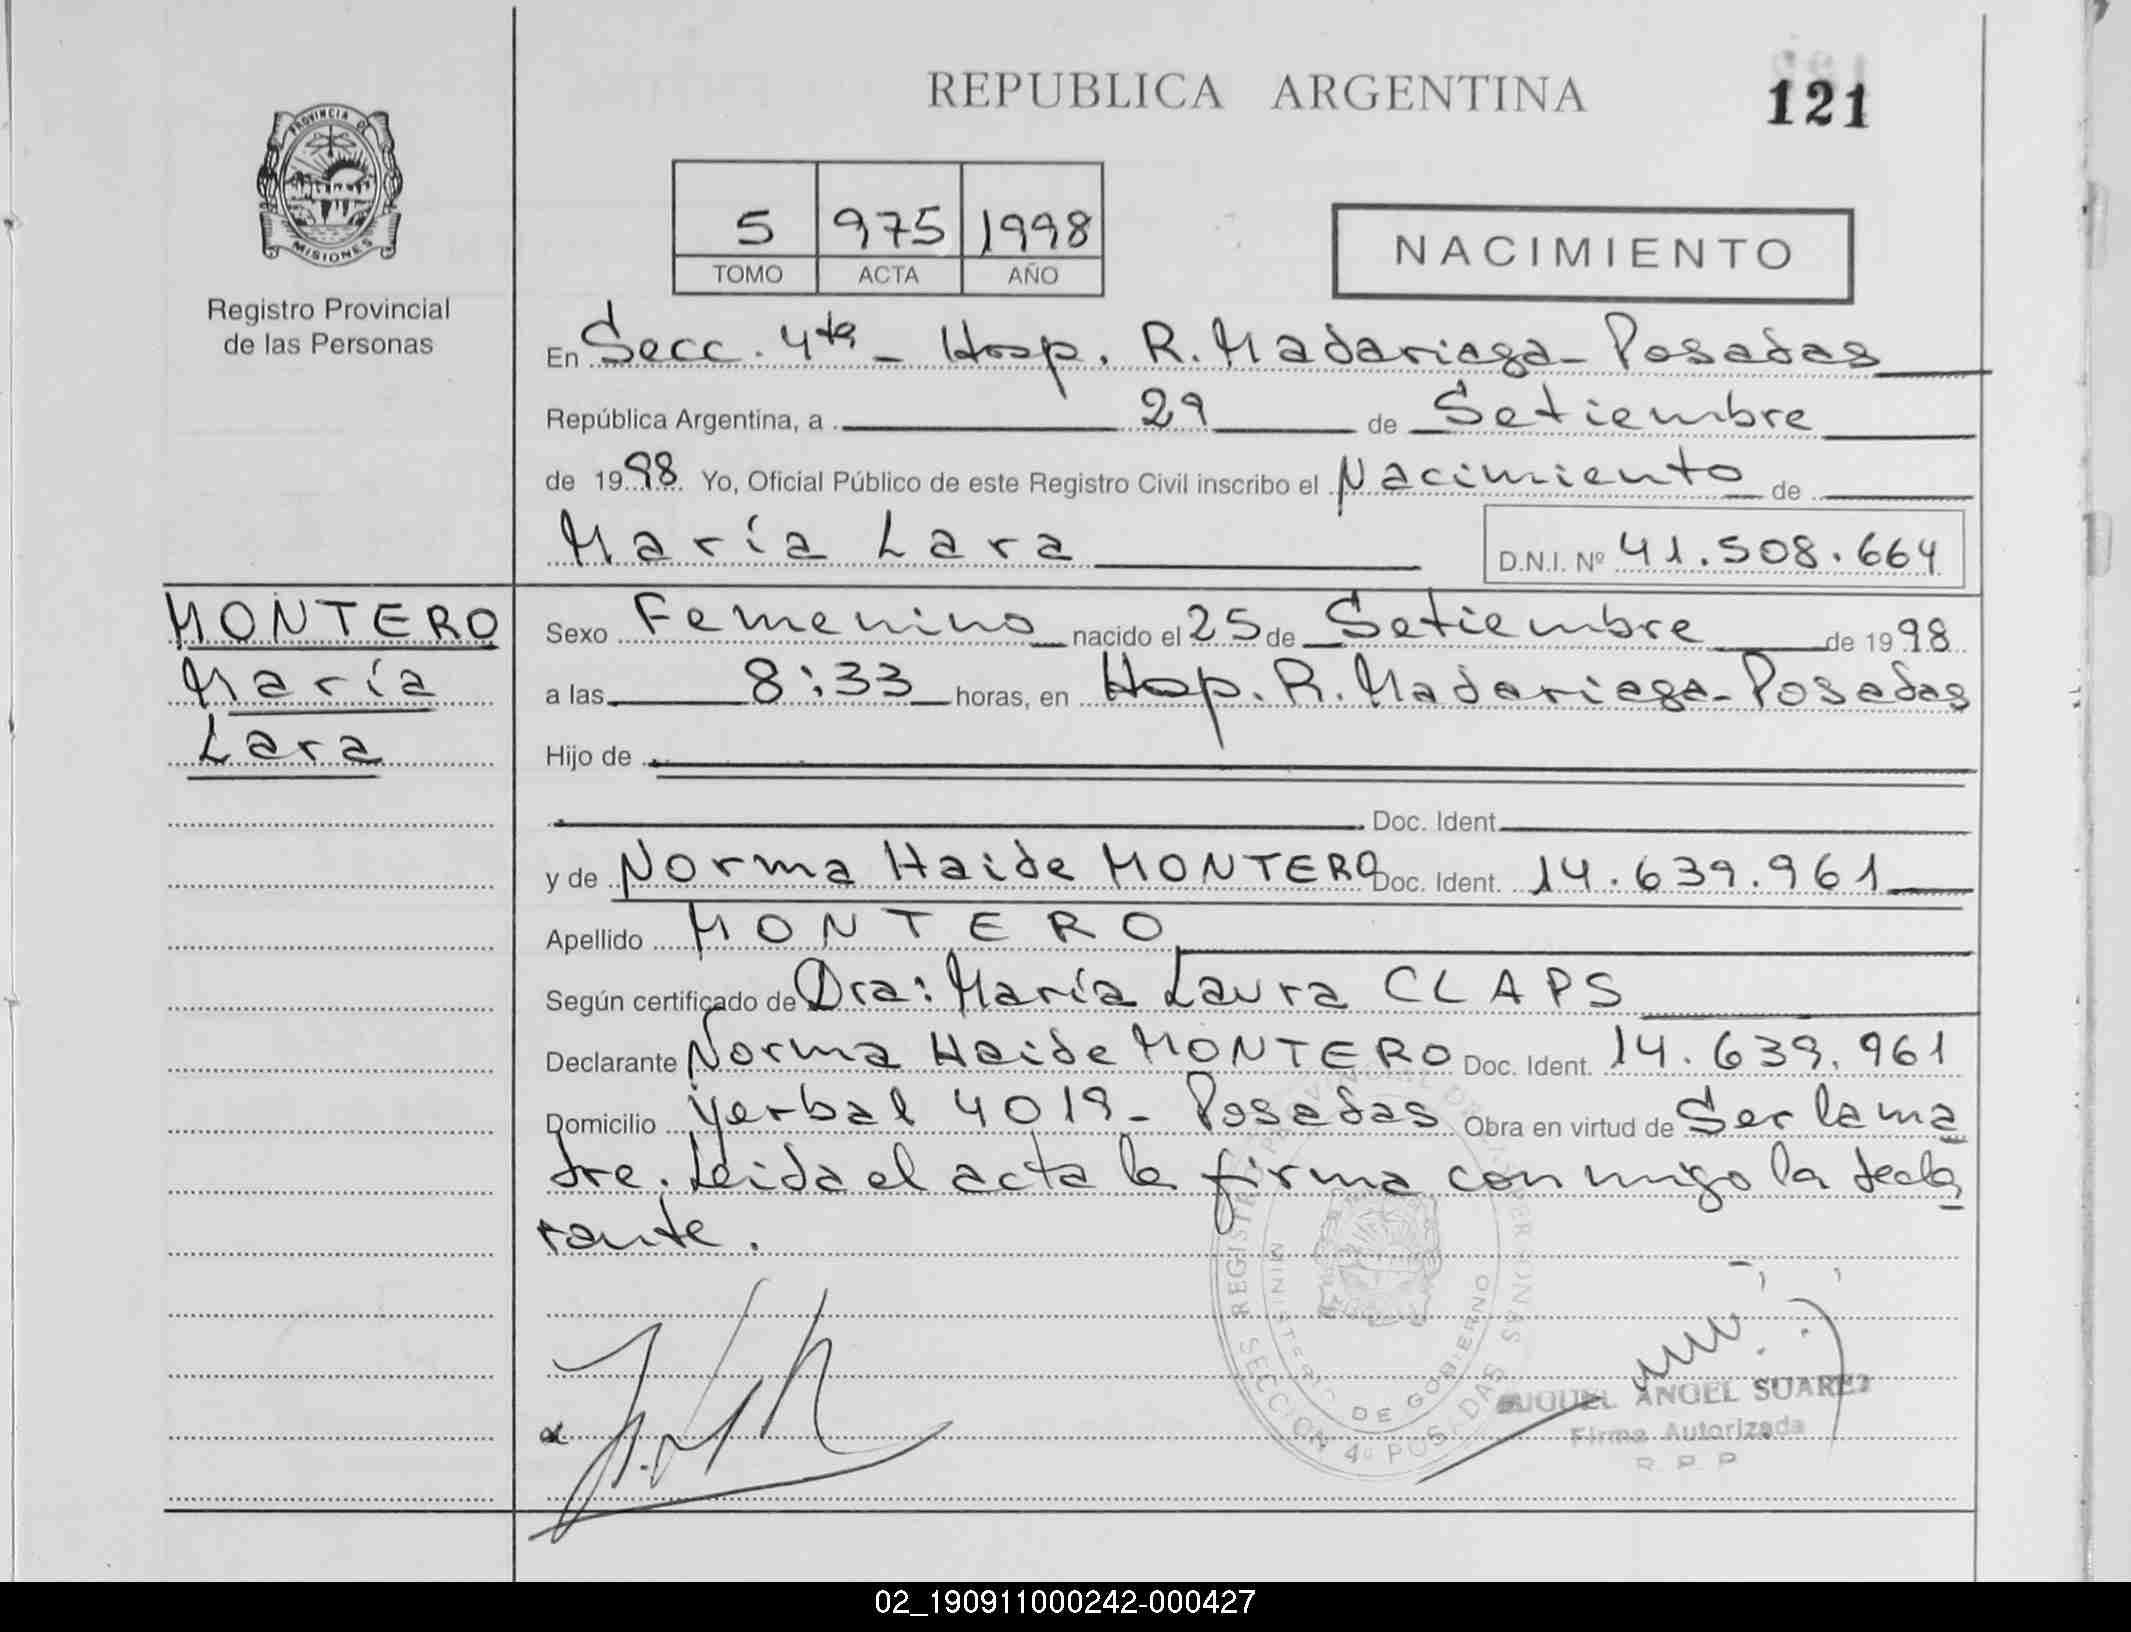 REPUBLICA ARGENTINA
121
PROVINCIA DE
MISIONES
Registro Provincial
de las Personas
5 975 1998
TOMO ACTA AÑO
NACIMIENTO
En Secc. 4ta - Hosp. R. Madariaga - Posadas
República Argentina, a 29 de Setiembre
de 1998 Yo, Oficial Público de este Registro Civil inscribo el Nacimiento de
María Lara D.N.I. Nº 41.508.664
MONTERO
María
Lara
Sexo Femenino nacido el 25 de Setiembre de 1998
a las 8:33 horas, en Hosp. R. Madariaga - Posadas
Hijo de
Doc. Ident.
y de Norma Haide MONTERO Doc. Ident. 14.639.961
Apellido MONTERO
Según certificado de Dra: María Laura CLAPS
Declarante Norma Haide MONTERO Doc. Ident. 14.639.961
Domicilio Yerbal 4019 - Posadas Obra en virtud de Ser la ma
dre. Leida el acta la firma conmigo la decla
rante.
MINISTERIO DE GOBIERNO
SECCION 4º POSADAS
MIGUEL ANGEL SUAREZ
Firma Autorizada
R P P
02_190911000242-000427